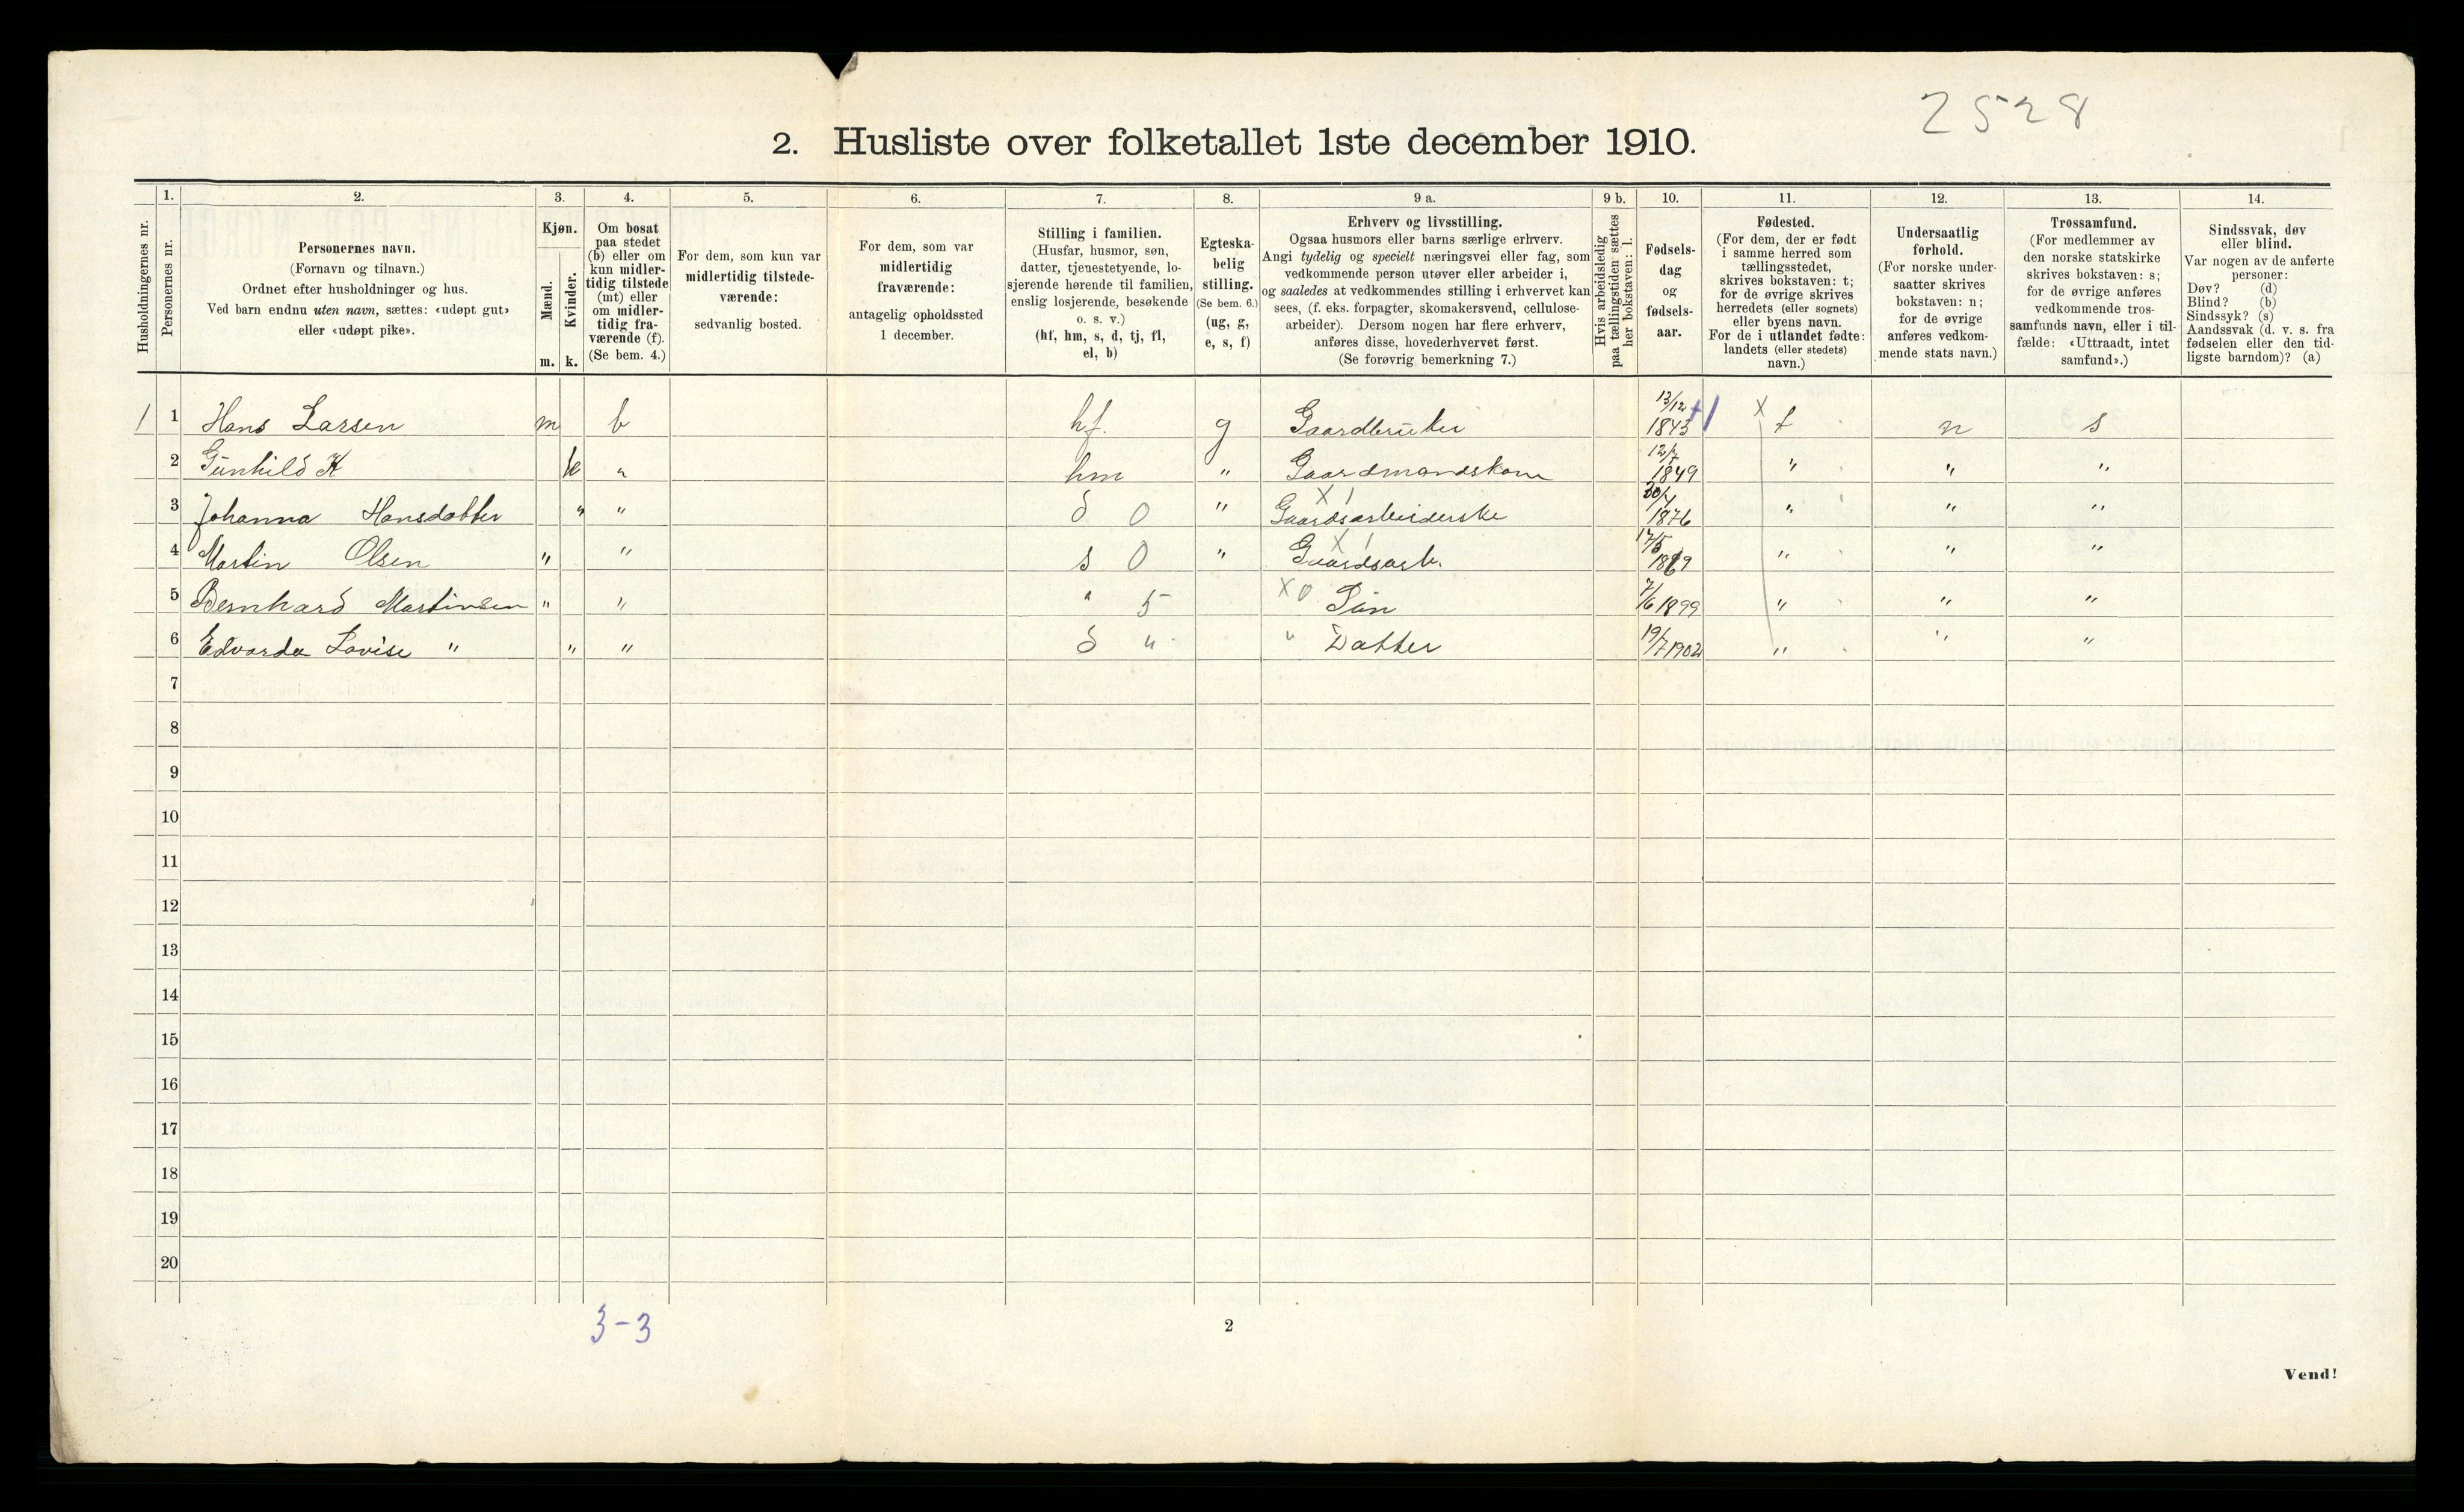 2528
2. Husliste over folketallet 1ste december 1910.
Husholdningernes nr.
1.
Personernes nr.
2.
Personernes navn.
(Fornavn og tilnavn.)
Ordnet efter husholdninger og hus.
Ved barn endnu uten navn, sættes: «udøpt gut»
eller «udøpt pike».
3.
Kjøn.
Mænd.
m.
Kvinder.
k.
4.
Om bosat
paa stedet
(b) eller om
kun midler-
tidig tilstede
(mt) eller
om midler-
tidig fra-
værende (f).
(Se bem. 4.)
5.
For dem, som kun var
midlertidig tilstede-
værende:
sedvanlig bosted.
6.
For dem, som var
midlertidig
fraværende:
antagelig opholdssted
1 december.
7.
Stilling i familien.
(Husfar, husmor, søn,
datter, tjenestetyende, lo-
sjerende hørende til familien,
enslig losjerende, besøkende
o. s. v.)
(hf, hm, s, d, tj, fl,
el, b)
8.
Egteska-
belig
stilling.
(Se bem. 6.)
(ug, g,
e, s, f)
9 a.
Erhverv og livsstilling.
Ogsaa husmors eller barns særlige erhverv.
Angi tydelig og specielt næringsvei eller fag, som
vedkommende person utøver eller arbeider i,
og saaledes at vedkommendes stilling i erhvervet kan
sees, (f. eks. forpagter, skomakersvend, cellulose-
arbeider). Dersom nogen har flere erhverv,
anføres disse, hovederhvervet først.
(Se forøvrig bemerkning 7.)
9 b.
Hvis arbeidsledig
paa tællingstiden sættes
her bokstaven: l.
10.
Fødsels-
dag
og
fødsels-
aar.
11.
Fødested.
(For dem, der er født
i samme herred som
tællingsstedet,
skrives bokstaven: t;
for de øvrige skrives
herredets (eller sognets)
eller byens navn.
For de i utlandet fødte:
landets (eller stedets)
navn.)
12.
Undersaatlig
forhold.
(For norske under-
saatter skrives
bokstaven: n;
for de øvrige
anføres vedkom-
mende stats navn.)
13.
Trossamfund.
(For medlemmer av
den norske statskirke
skrives bokstaven: s;
for de øvrige anføres
vedkommende tros-
samfunds navn, eller i til-
fælde: «Uttraadt, intet
samfund».)
14.
Sindssvak, døv
eller blind.
Var nogen av de anførte
personer:
Døv? (d)
Blind? (b)
Sindssyk? (s)
Aandssvak (d. v. s. fra
fødselen eller den tid-
ligste barndom)? (a)
1 1 Hans Larsen m b hf. g Gaardbruker 13/12 1843 X t n s
2 Gunhild K k " hm " Gaardmandskone 12/7 1849 " " "
3 Johanna Hansdatter " " d 0 " X 1 Gaardsarbeiderske 1876 " " "
4 Martin Olsen " " s 0 " X 1 Gaardsarb. 17/5 1869 " " "
5 Bernhard Martinsen " " " 5 X 0 Søn 7/6 1899 " " "
6 Edvarda Lovise " " " d " " Datter 19/7 1902 " " "
7
8
9
10
11
12
13
14
15
16
17
18
19
20
3-3
2
Vend!